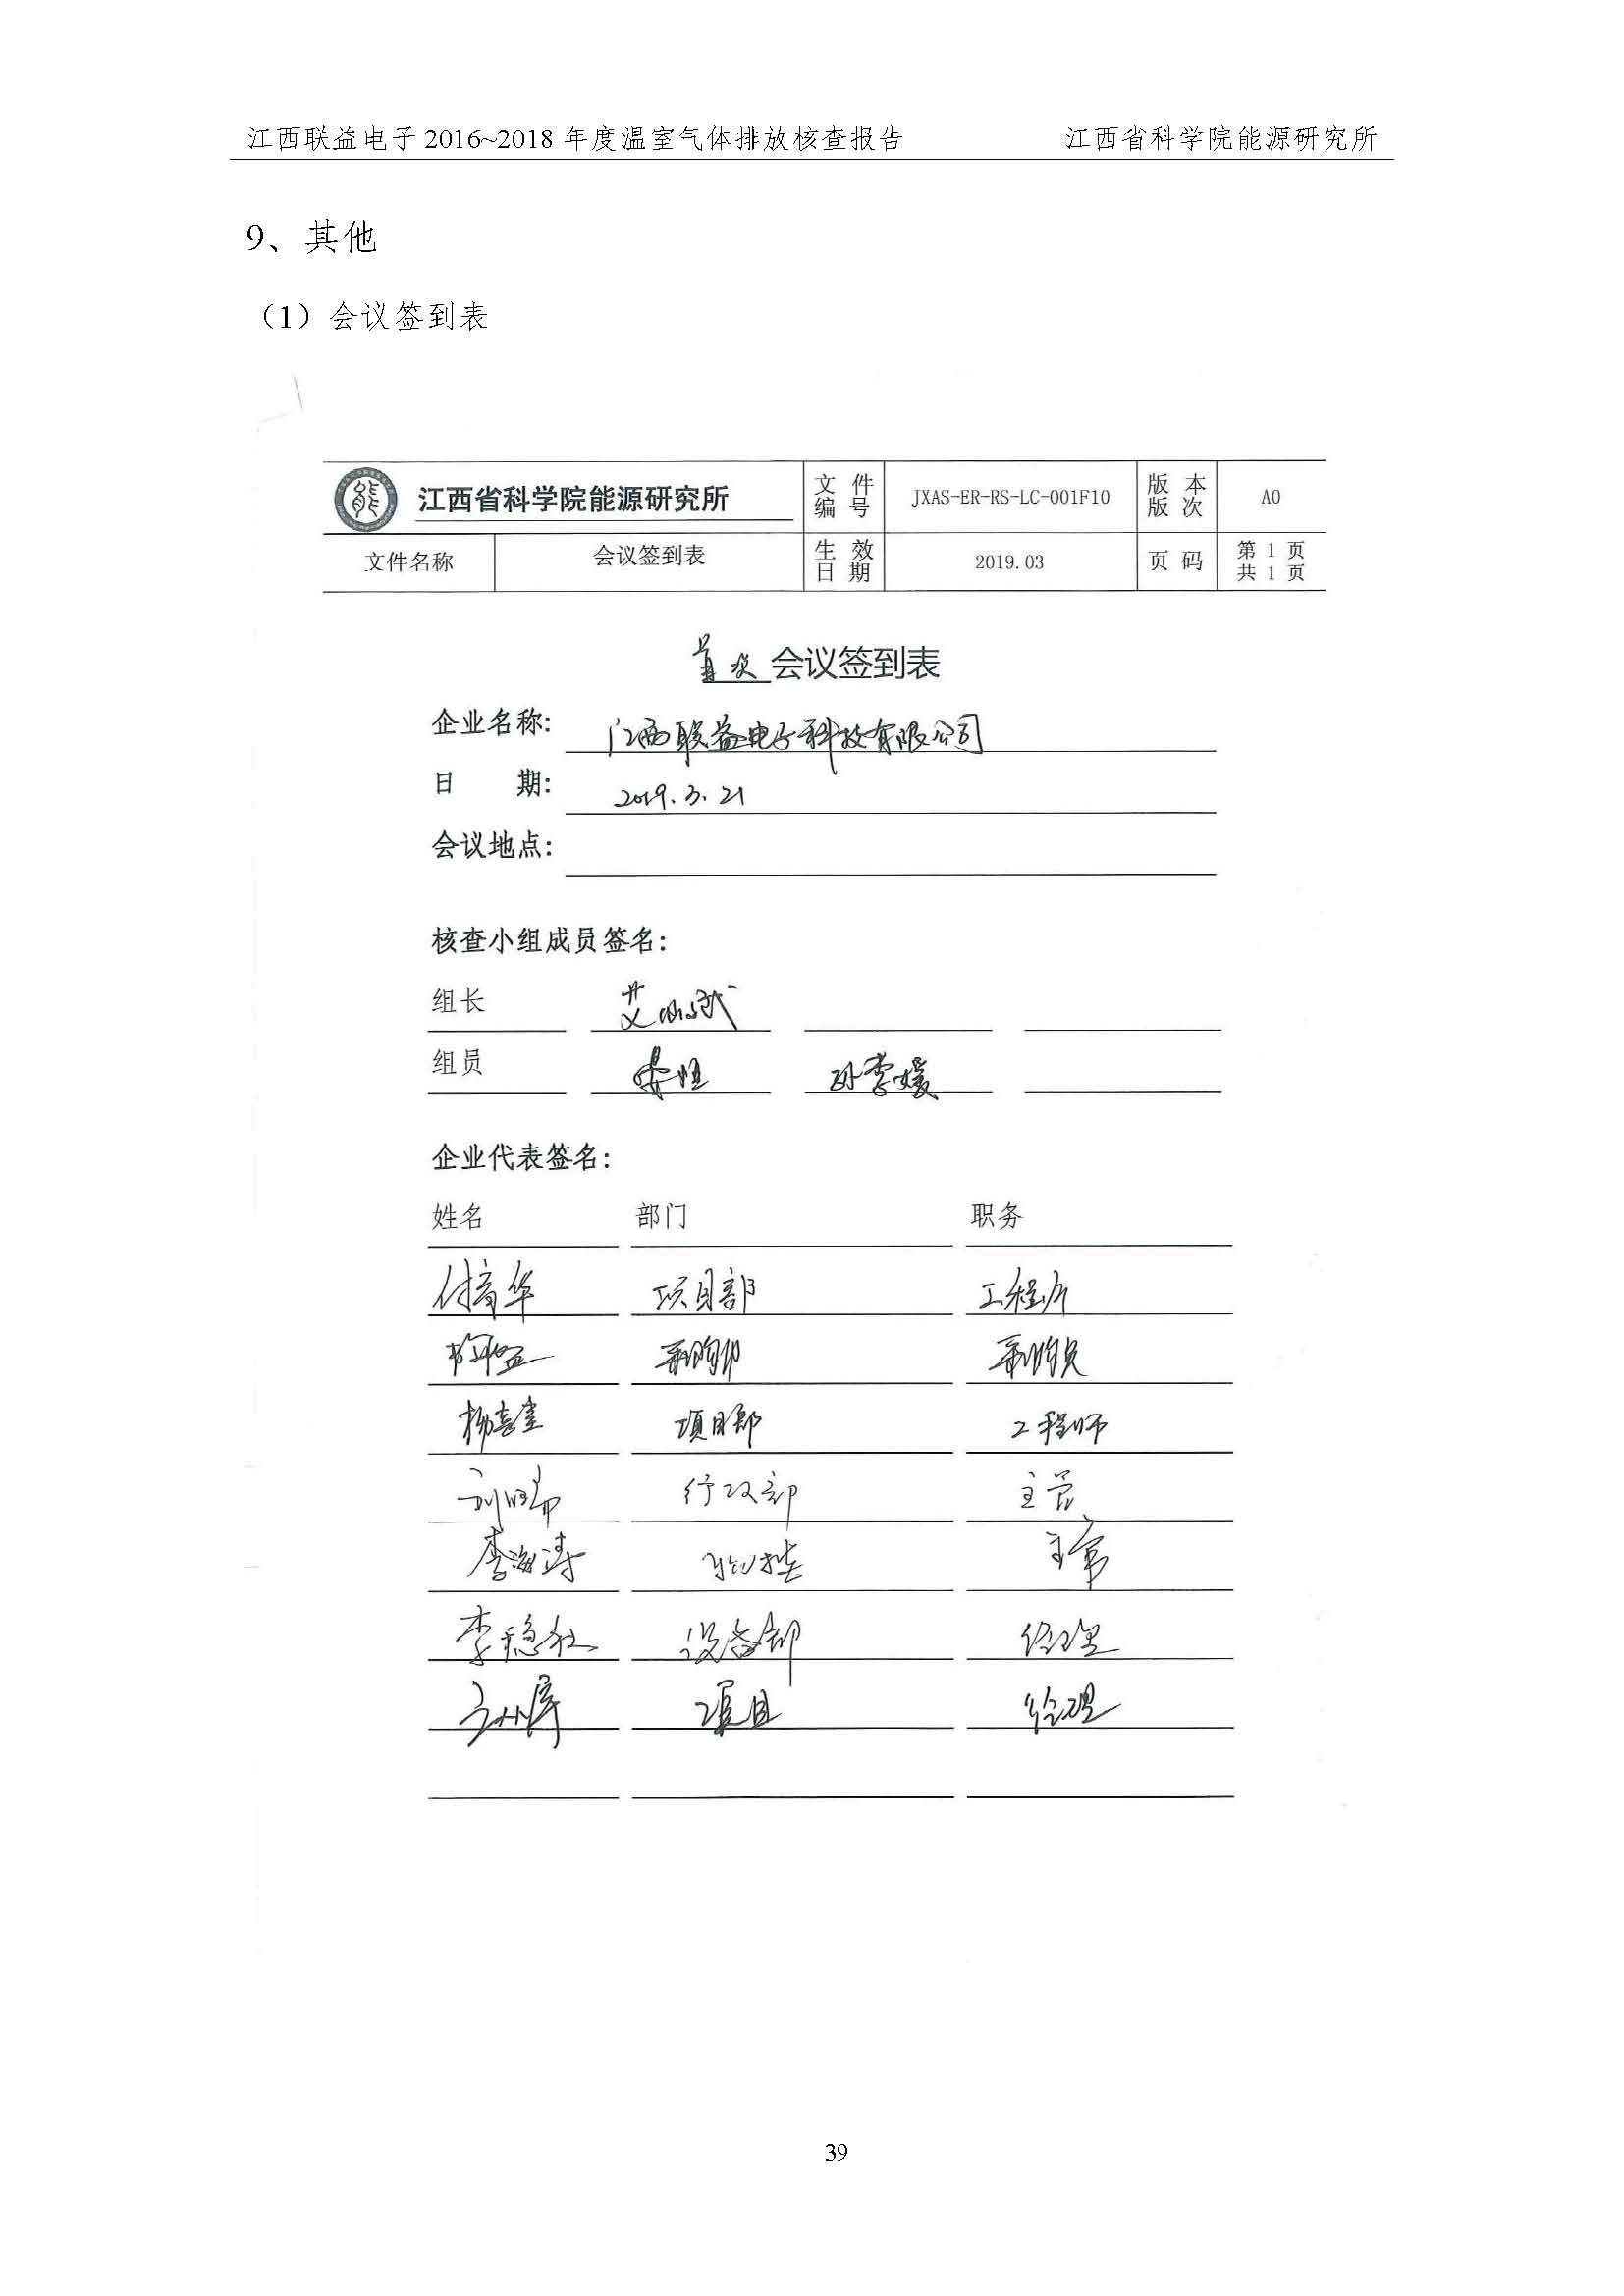 江西联益电子2016~2018年度温室气体排放核查报告 江西省科学院能源研究所
9、其他
（1）会议签到表
江西省科学院能源研究所 文件编号 JXAS-ER-RS-LC-001F10 版本版次 A0
文件名称 会议签到表 生效日期 2019.03 页码 第1页共1页
首次会议签到表
企业名称: 江西联益电子科技有限公司
日期: 2019.3.21
会议地点:
核查小组成员签名:
组长
组员
企业代表签名:
姓名 部门 职务
项目部 工程师
采购部 采购员
杨喜宝 项目部 工程师
行政部 主管
李海涛 主管
设备部 经理
项目 经理
39